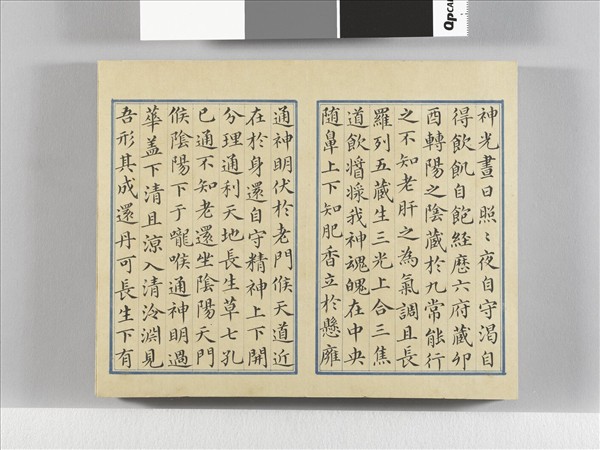 神光晝日照〻夜自守渴自
得飲飢自飽經歷六府藏卯
酉轉陽之陰藏於九常能行
之不知老肝之為氣調且長
羅列五藏生三光上合三焦
道飲醬漿我神魂魄在中央
随鼻上下知肥香立於懸雍
通神明伏於老門候天道近
在於身還自守精神上下開
分理通利天地長生草七孔
已通不知老還坐陰陽天門
候陰陽下于嚨喉通神明過
華盖下清且涼入清泠淵見
吾形其成還丹可長生下有